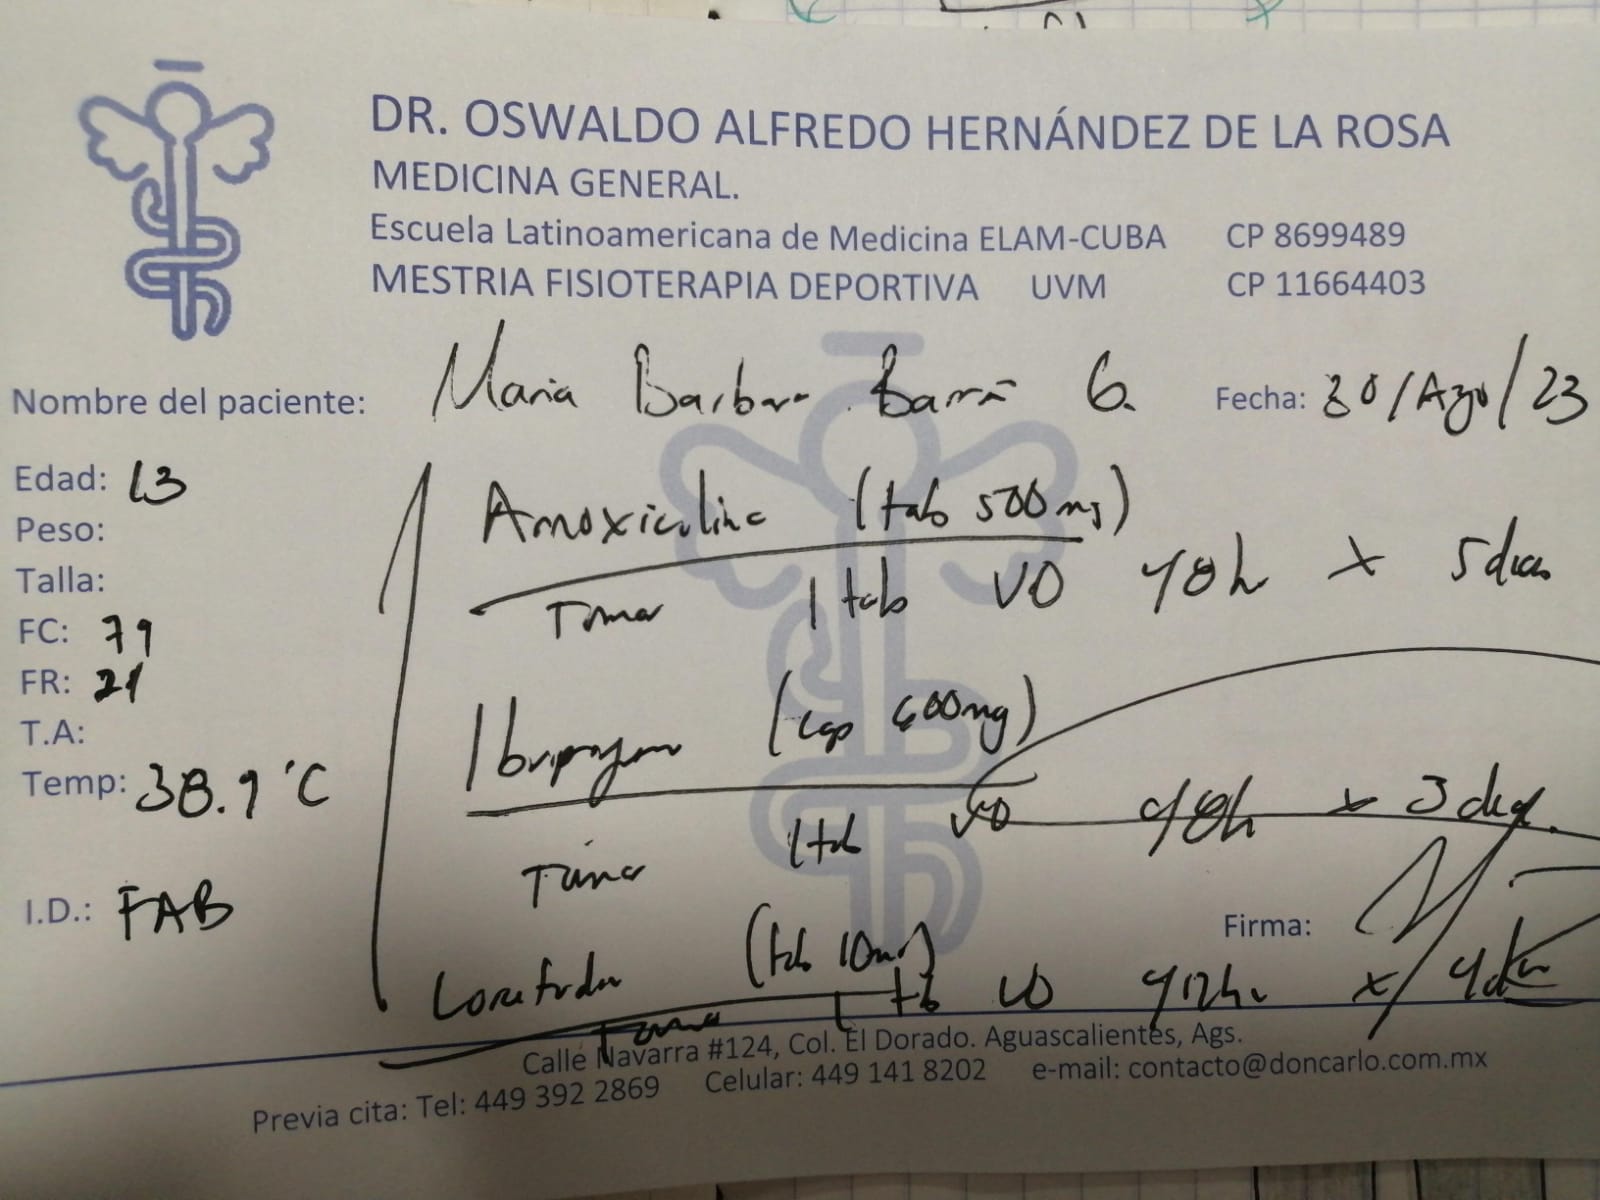 DR. OSWALDO ALFREDO HERNÁNDEZ DE LA ROSA
MEDICINA GENERAL.
Escuela Latinoamericana de Medicina ELAM-CUBA CP 8699489
MESTRIA FISIOTERAPIA DEPORTIVA UVM CP 11664403
Nombre del paciente: Maria Barbara G. Fecha: 30/Ago/23
Edad: 13
Peso:
Talla:
FC: 79
FR: 21
T.A:
Temp: 38.9 °C
I.D.: FAB
Amoxicilina (tab 500 mg)
Tomar 1 tab VO 8h x 5 dias
Ibuprofeno (cap 400mg)
Tomar 1 tab VO 8h x 3 dias
Loratadina (tab 10mg)
Tomar 1 tab VO 12h x
Firma:
Calle Navarra #124, Col. El Dorado. Aguascalientes, Ags.
Previa cita: Tel: 449 392 2869 Celular: 449 141 8202 e-mail: contacto@doncarlo.com.mx